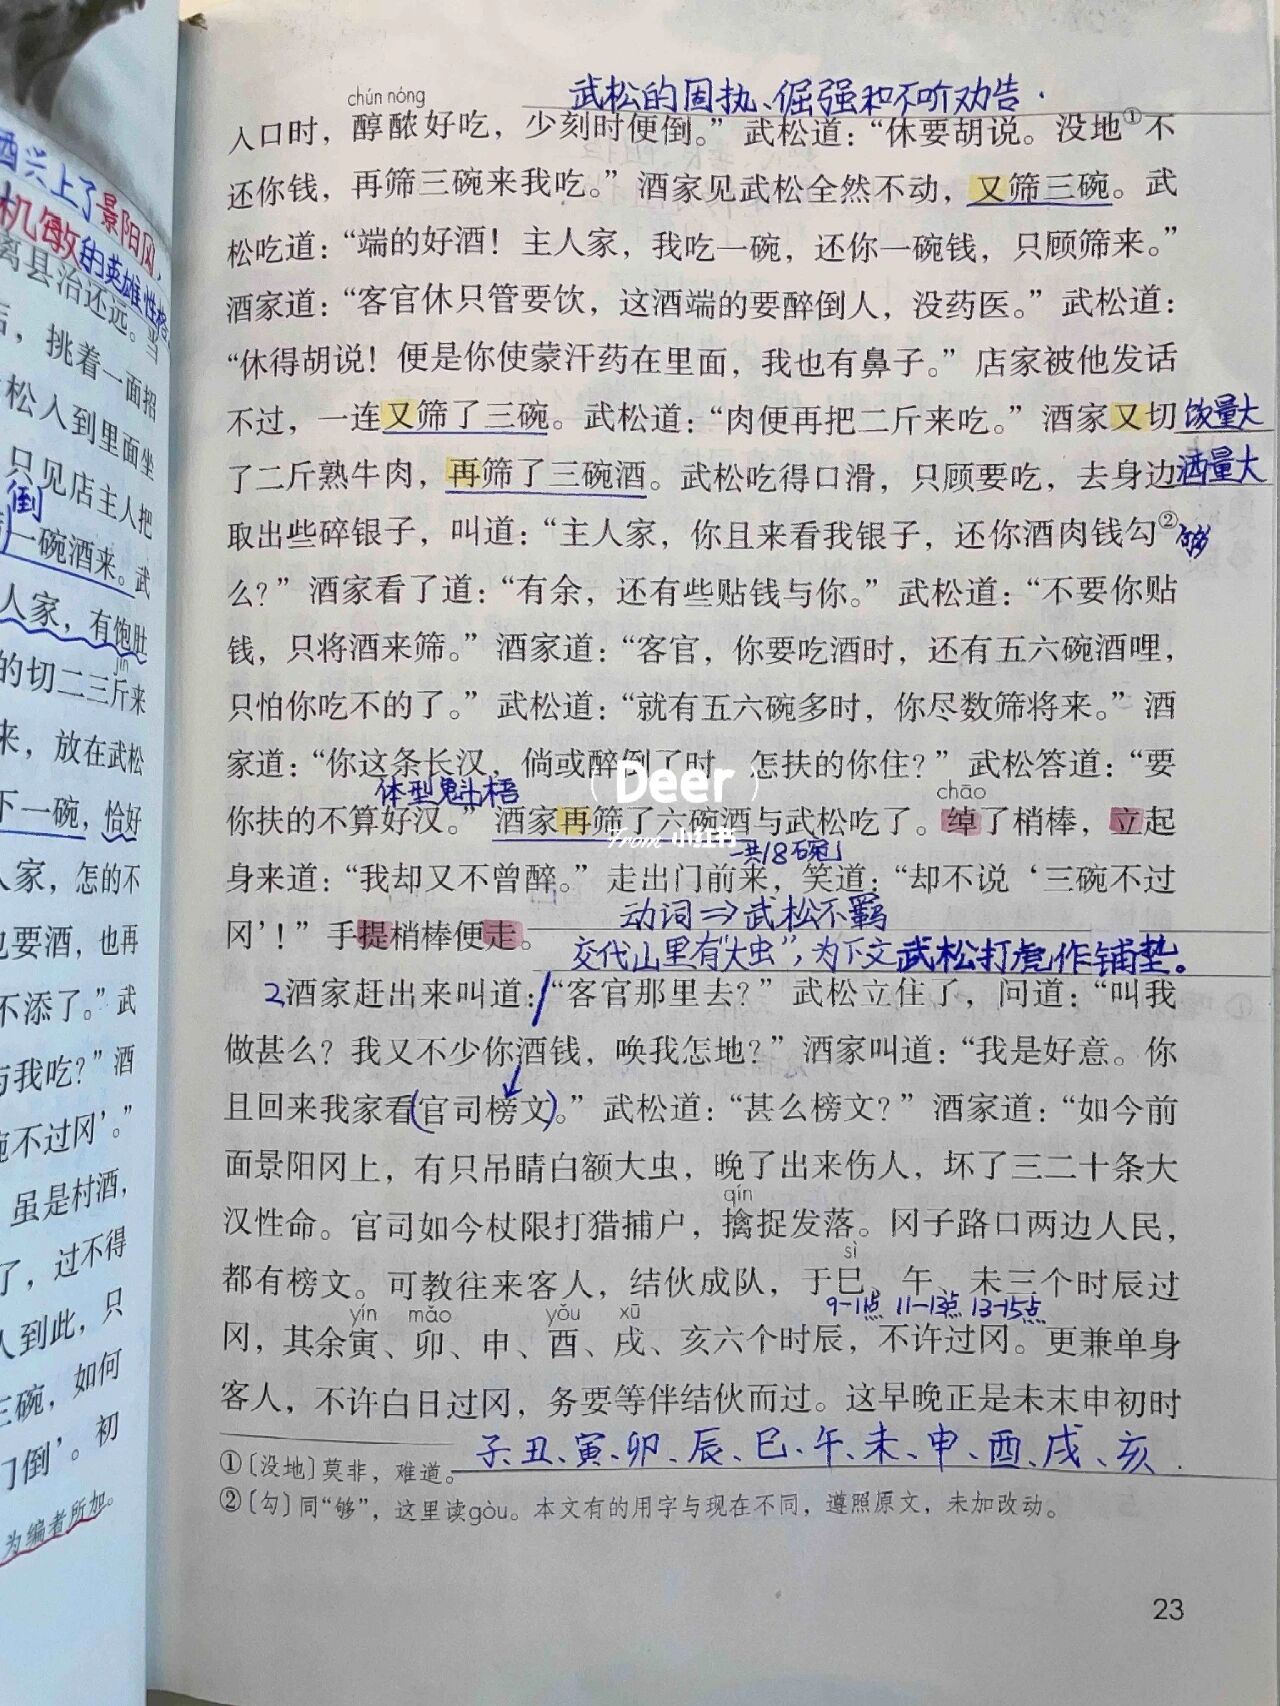 酒兴上了景阳冈,
机敏的英雄性格。
离县治还远。当
后，挑着一面招
松入到里面坐
只见店主人把
倒
一碗酒来。武
人家，有饱肚
jīn
的切二三斤来
来，放在武松
下一碗，恰好
人家，怎的不
也要酒，也再
不添了。”武
与我吃？”酒
碗不过冈’。”
虽是村酒，
了，过不得
人到此，只
三碗，如何
门倒’。初
为编者所加。
武松的固执、倔强和不听劝告.
chún nóng
入口时，醇醲好吃，少刻时便倒。”武松道：“休要胡说。没地①不
还你钱，再筛三碗来我吃。”酒家见武松全然不动，又筛三碗。武
松吃道：“端的好酒！主人家，我吃一碗，还你一碗钱，只顾筛来。”
酒家道：“客官休只管要饮，这酒端的要醉倒人，没药医。”武松道：
“休得胡说！便是你使蒙汗药在里面，我也有鼻子。”店家被他发话
不过，一连又筛了三碗。武松道：“肉便再把二斤来吃。”酒家又切
饭量大
了二斤熟牛肉，再筛了三碗酒。武松吃得口滑，只顾要吃，去身边
酒量大
取出些碎银子，叫道：“主人家，你且来看我银子，还你酒肉钱勾②
够
么？”酒家看了道：“有余，还有些贴钱与你。”武松道：“不要你贴
钱，只将酒来筛。”酒家道：“客官，你要吃酒时，还有五六碗酒哩，
只怕你吃不的了。”武松道：“就有五六碗多时，你尽数筛将来。”酒
家道：“你这条长汉，倘或醉倒了时，怎扶的你住？”武松答道：“要
Deer
体型魁梧
chāo
你扶的不算好汉。”酒家再筛了六碗酒与武松吃了。绰了梢棒，立起
From 小红书
一共18碗
身来道：“我却又不曾醉。”走出门前来，笑道：“却不说‘三碗不过
动词⇒武松不羁
冈’！”手提梢棒便走。
交代山里有“大虫”，为下文武松打虎作铺垫。
2酒家赶出来叫道：“客官那里去？”武松立住了，问道：“叫我
做甚么？我又不少你酒钱，唤我怎地？”酒家叫道：“我是好意。你
且回来我家看(官司榜文)。”武松道：“甚么榜文？”酒家道：“如今前
面景阳冈上，有只吊睛白额大虫，晚了出来伤人，坏了三二十条大
qín
汉性命。官司如今杖限打猎捕户，擒捉发落。冈子路口两边人民，
sì
都有榜文。可教往来客人，结伙成队，于巳、午、未三个时辰过
9-11点 11-13点 13-15点
yín mǎo yǒu xū
冈，其余寅、卯、申、酉、戌、亥六个时辰，不许过冈。更兼单身
客人，不许白日过冈，务要等伴结伙而过。这早晚正是未末申初时
子、丑、寅、卯、辰、巳、午、未、申、酉、戌、亥.
①〔没地〕莫非，难道。
②〔勾〕同“够”，这里读gòu。本文有的用字与现在不同，遵照原文，未加改动。
23